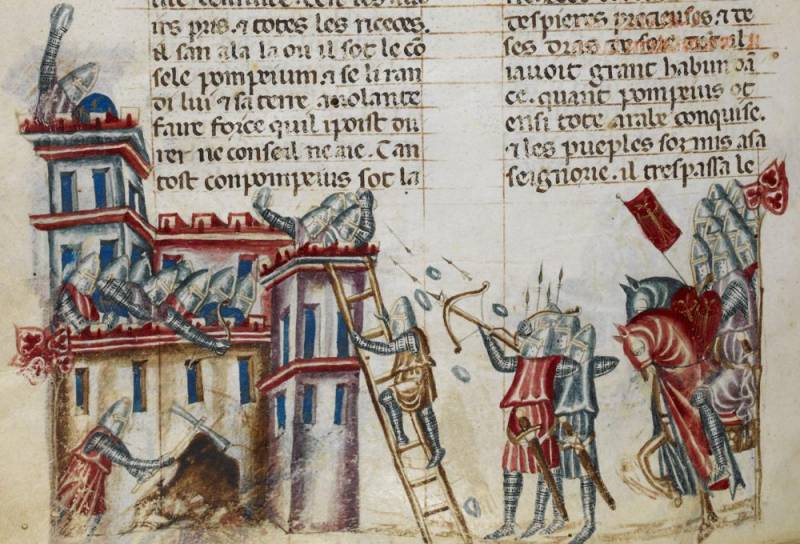 irs pris. ⁊ totes les riceces.
⁊ san ala la ou il sot le co
sele pompeium ⁊ se li ran
di lui ⁊ sa terre a uolante
faire force quil i poist ou
rer ne conseil ne aie. Tan
tost con pompeius sot la
des pierres precieuses. ⁊ te
ses dras
iauoit grant habundā
ce. quant pompeius ot
ensi tote arabe conquise.
⁊ les pueples sormis a sa
seignorie. il trespassa le